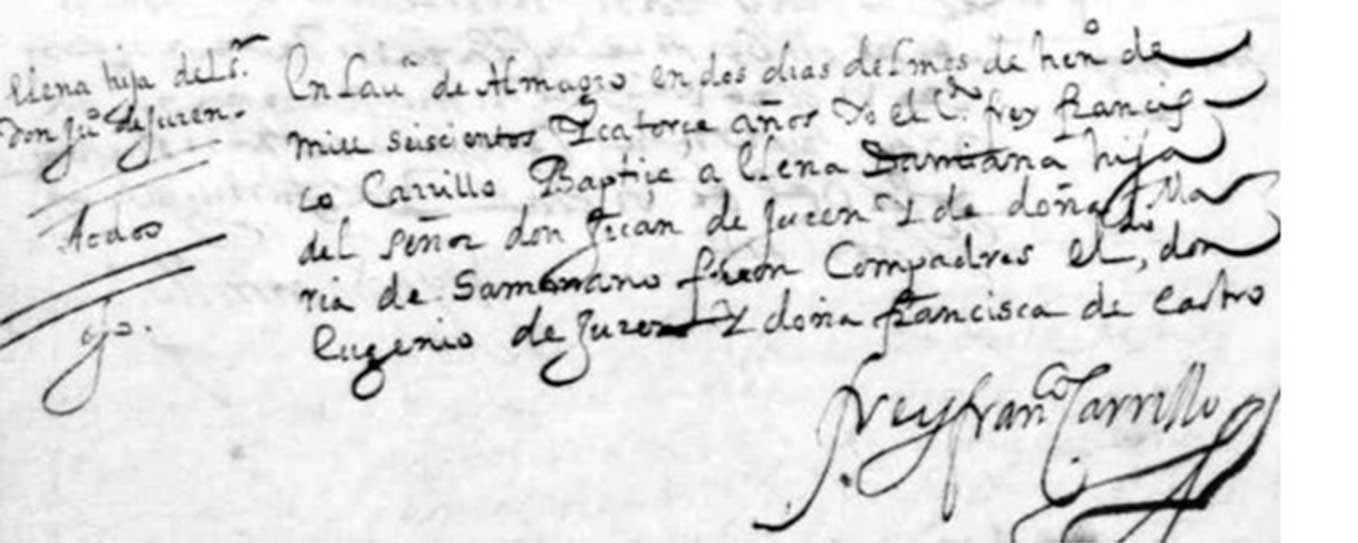 Elena hija del Sr.
Don Juº de Juren-
A dos
En la uª de Almagro en dos dias del mes de henº de
mill seiscientos Y catorçe años Yo el frey francis-
co Carrillo Baptiçe a Elena Damiana hija
del señor don Juan de Juren Y de doña Ma
ria de Samaniano fueron Compadres el do, don
Eugenio de Juren Y doña francisca de Castro
frey franco Carrillo